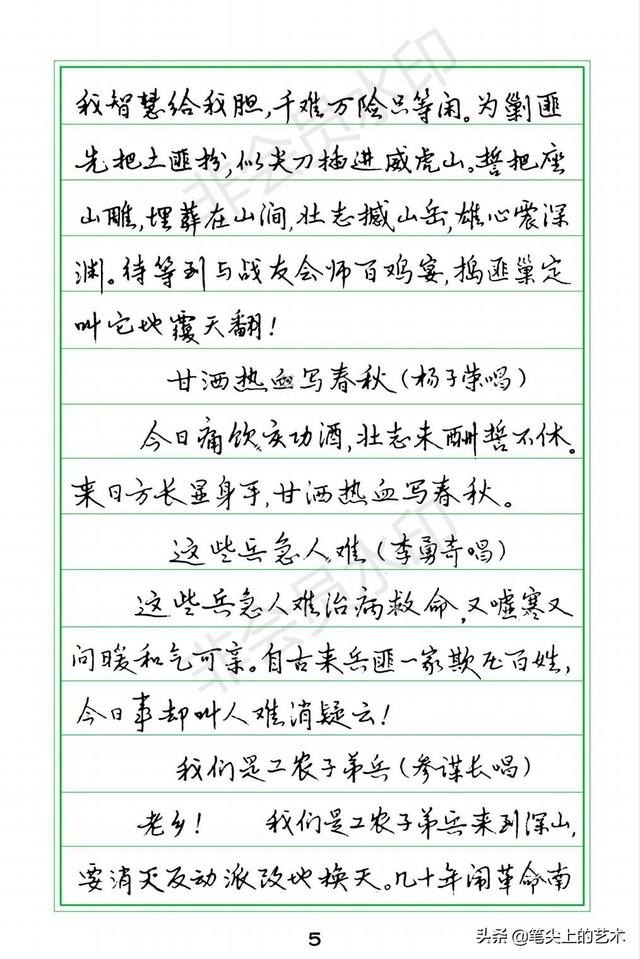 我智慧给我胆,千难万险只等闲。为剿匪
先把土匪扮,似尖刀插进威虎山。誓把座
山雕,埋葬在山涧,壮志撼山岳,雄心震深
渊。待等到与战友会师百鸡宴,捣匪巢定
叫它地覆天翻!
甘洒热血写春秋(杨子荣唱)
今日痛饮庆功酒,壮志未酬誓不休。
来日方长显身手,甘洒热血写春秋。
这些兵急人难(李勇奇唱)
这些兵急人难治病救命,又嘘寒又
问暖和气可亲。自古来兵匪一家欺压百姓,
今日事却叫人难消疑云!
我们是工农子弟兵(参谋长唱)
老乡! 我们是工农子弟兵来到深山,
要消灭反动派改地换天。几十年闹革命南
5
非会员水印
非会员水印
头条@笔尖上的艺术